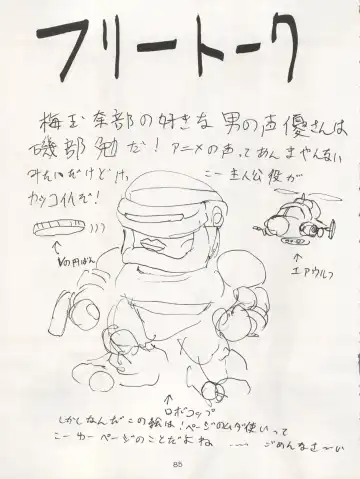 フリートーク
梅玉奈部の好きな男の声優さんは
磯部勉だ！アニメの声ってあんまやんない
みたいだけど、こー主人公役が
カッコ代ぞ！
Vの円ばん
エアウルフ
ロボコップ
しかしなんだこの絵は！ページのムダ使いって
こーゆーページのことだよね …… ごめんなさ〜い
85